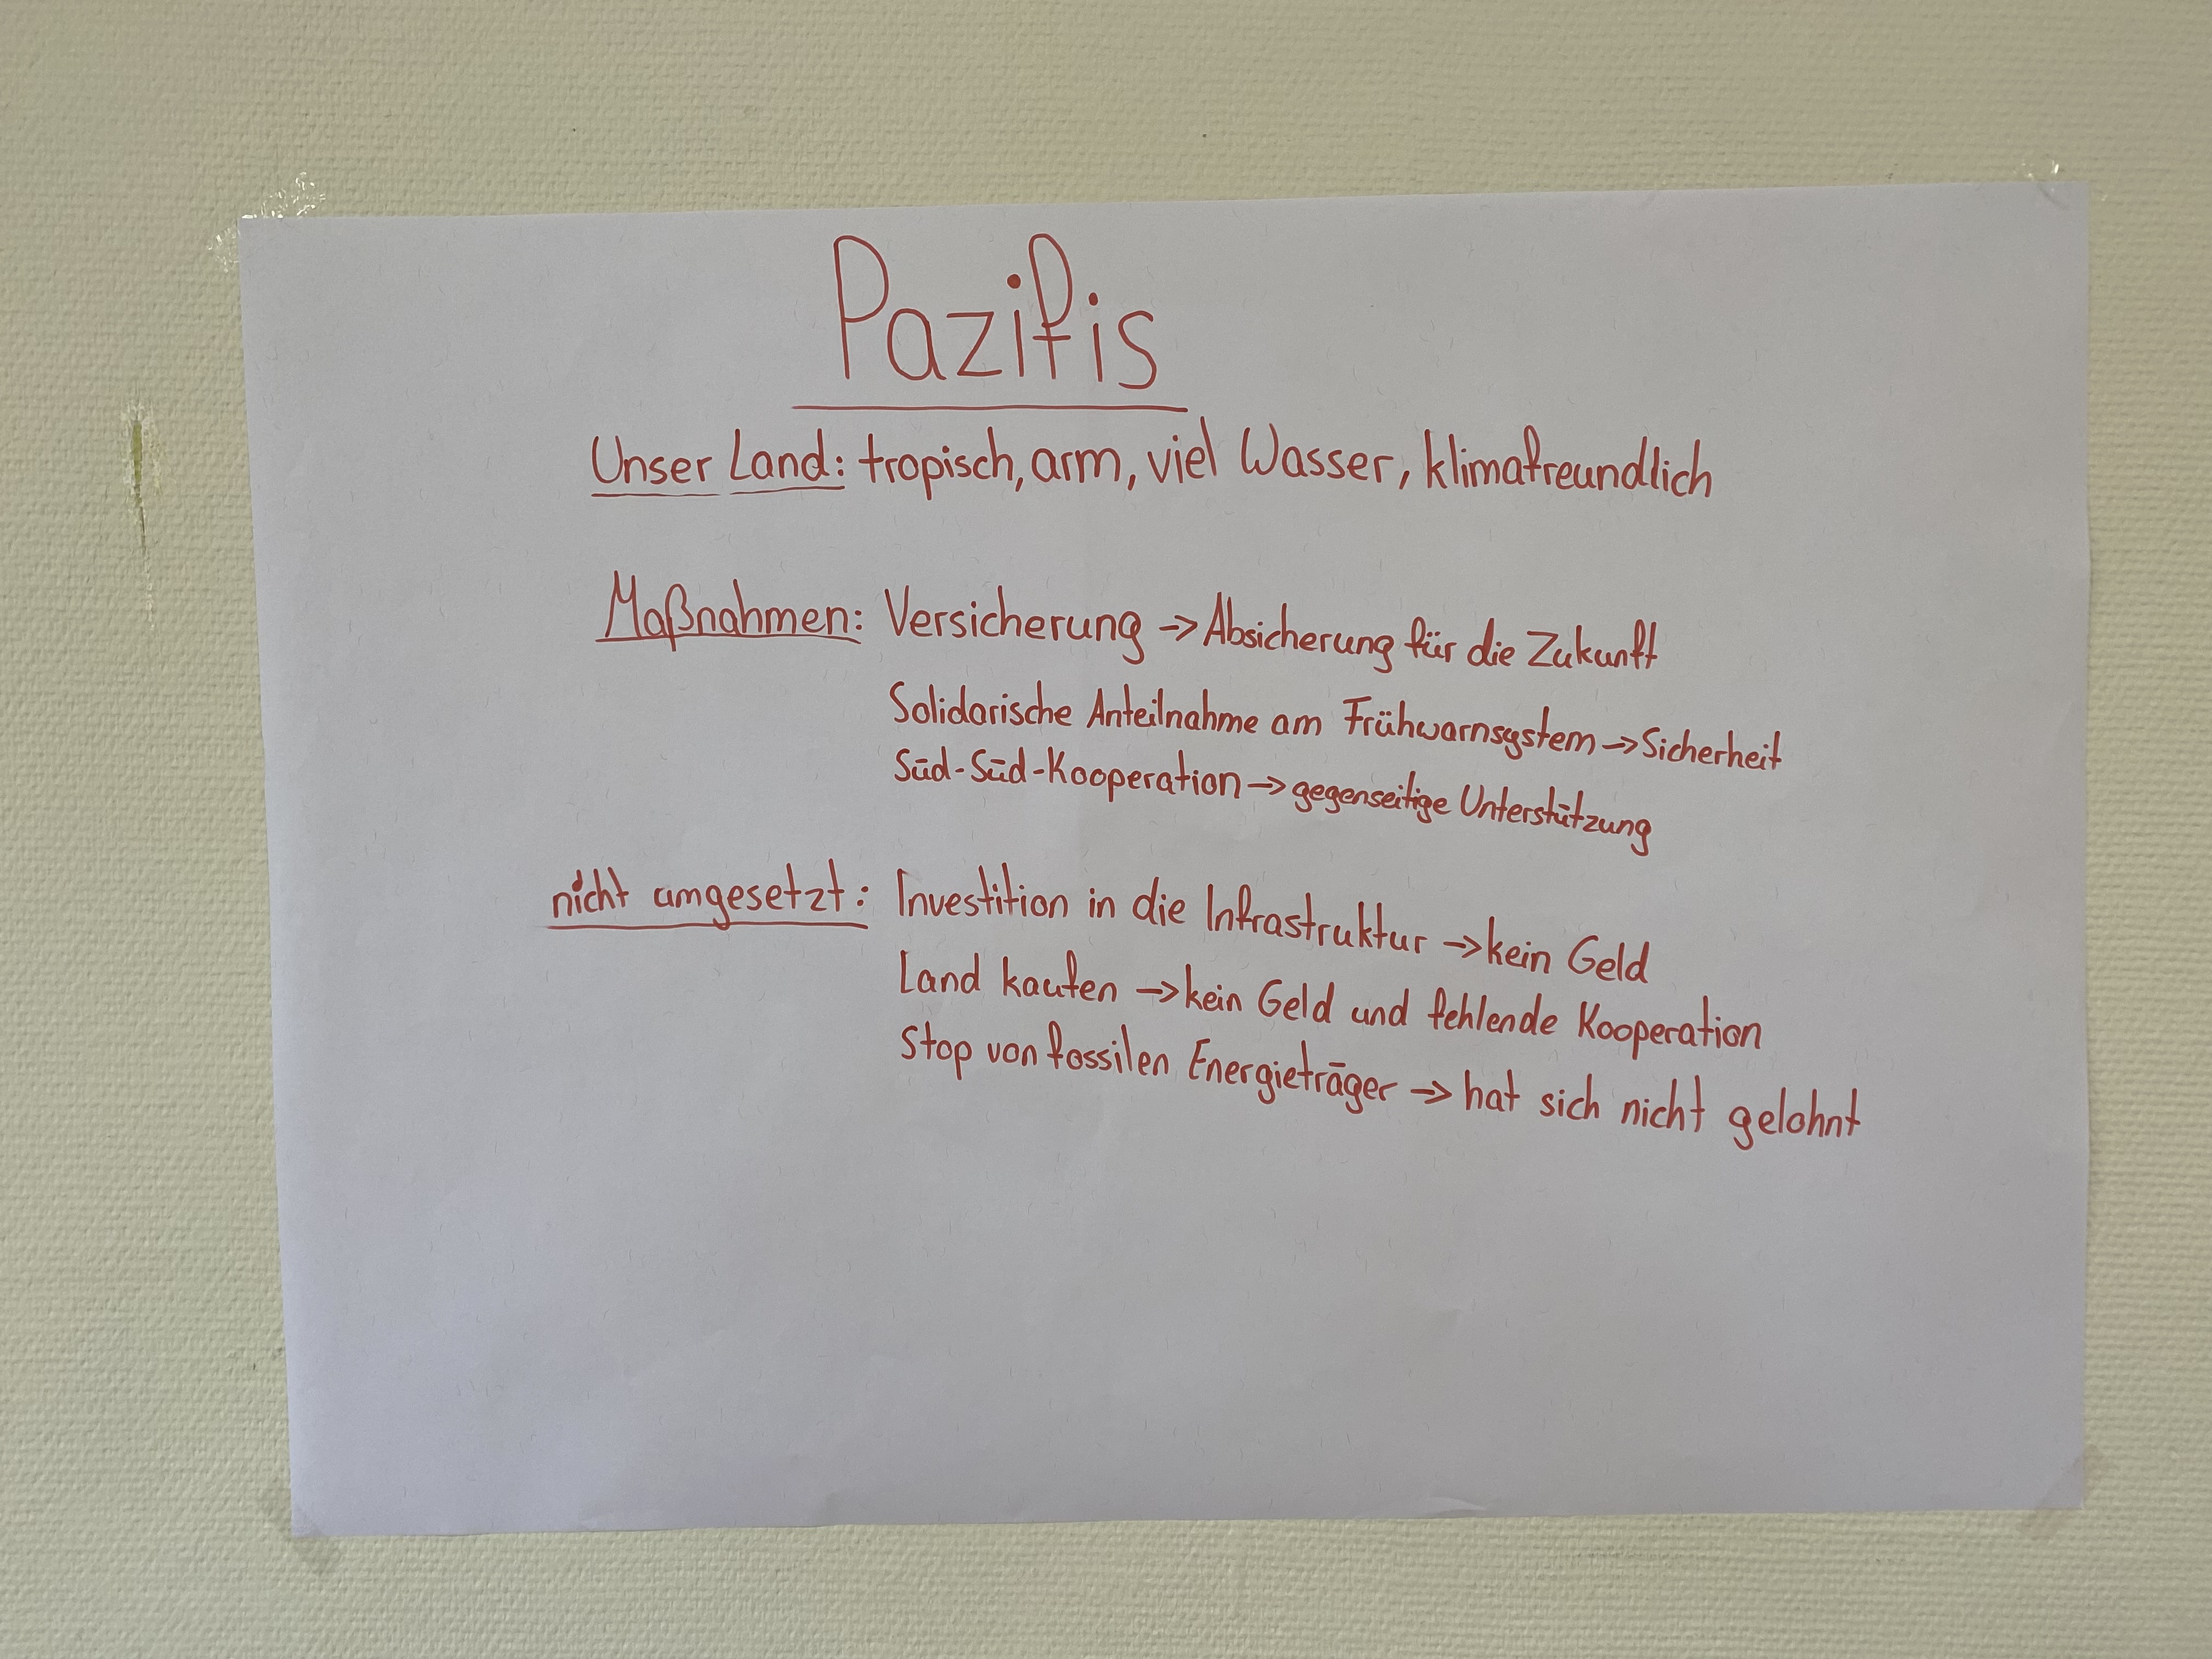 Pazifis
Unser Land: tropisch, arm, viel Wasser, klimafreundlich
Maßnahmen: Versicherung → Absicherung für die Zukunft
Solidarische Anteilnahme am Frühwarnsystem → Sicherheit
Süd-Süd-Kooperation → gegenseitige Unterstützung
nicht umgesetzt: Investition in die Infrastruktur → kein Geld
Land kaufen → kein Geld und fehlende Kooperation
Stop von fossilen Energieträger → hat sich nicht gelohnt